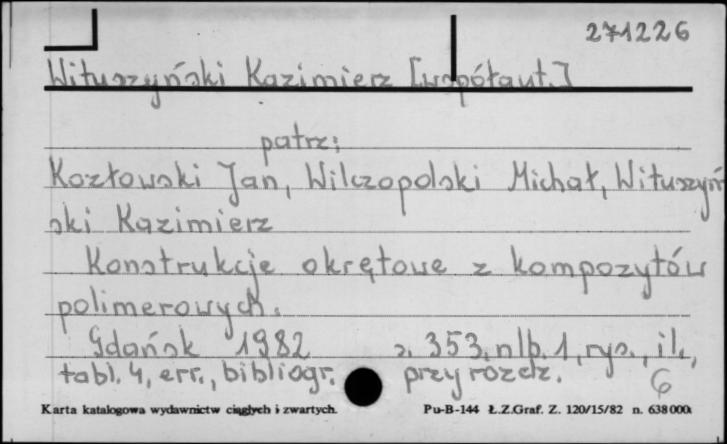 271226
Wituszyński Kazimierz [współaut.]
patrz:
Kozłowski Jan, Wilczopolski Michał, Wituszyń-
ski Kazimierz
Konstrukcje okrętowe z kompozytów
polimerowych.
Gdańsk 1982 s. 353, nlb. 1, rys., il.,
tabl. 4, err., bibliogr. przy rozdz. 6
Karta katalogowa wydawnictw ciągłych i zwartych. Pu-B-144 Ł.Z.Graf. Z. 120/15/82 n. 638 000